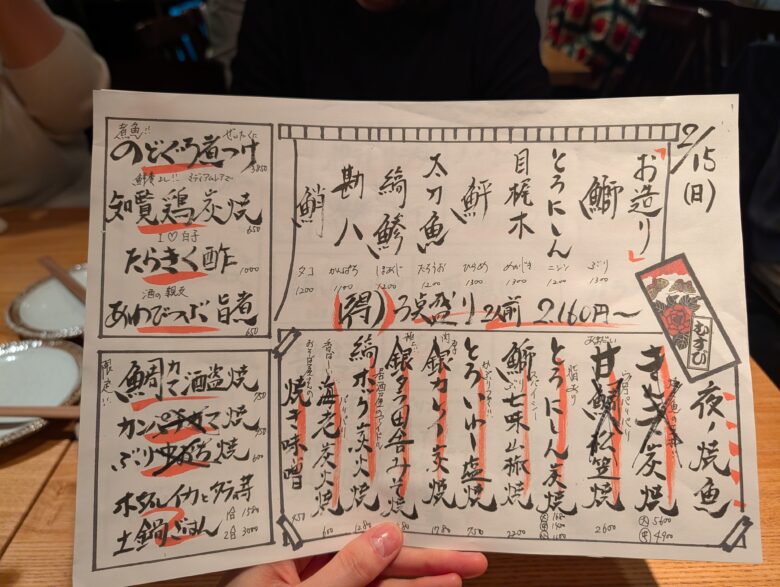 2/15
(日)
むすび
「お造り」
鰤 ぶり 1300
とろにしん ニシン 1200
目梶木 めかじき 1300
鮃 ひらめ 1300
太刀魚 たちうお 1200
縞鯵 しまあじ 1200
勘八 かんぱち 1100
鮹 タコ 1200
(得) 3点盛り 2人前 2160円〜
夜ノ焼魚
炭焼 大 5600 半 4900
甘鯛松笠焼 2600
とろにしん炭焼
鰤七味山椒焼 2200
とろいわし塩焼 750
銀カレイ炭焼 1780
銀タラ田舎みそ焼
縞ホッケ炭火焼 1280
海老炭火焼 600
焼き味噌 450
煮魚!! ぜいたくに
のどぐろ煮つけ 3850
知覧鶏炭焼 650
I ♡ 白子
たらきく酢 1000
酒の親友
あわびつぶ旨煮 650
限定!!
鯛カマ酒盗焼 750
カンパチカマ焼 950
ぶり 焼 600
ホタルイカとタラの芽
土鍋ごはん 1合 1580 2合 3000